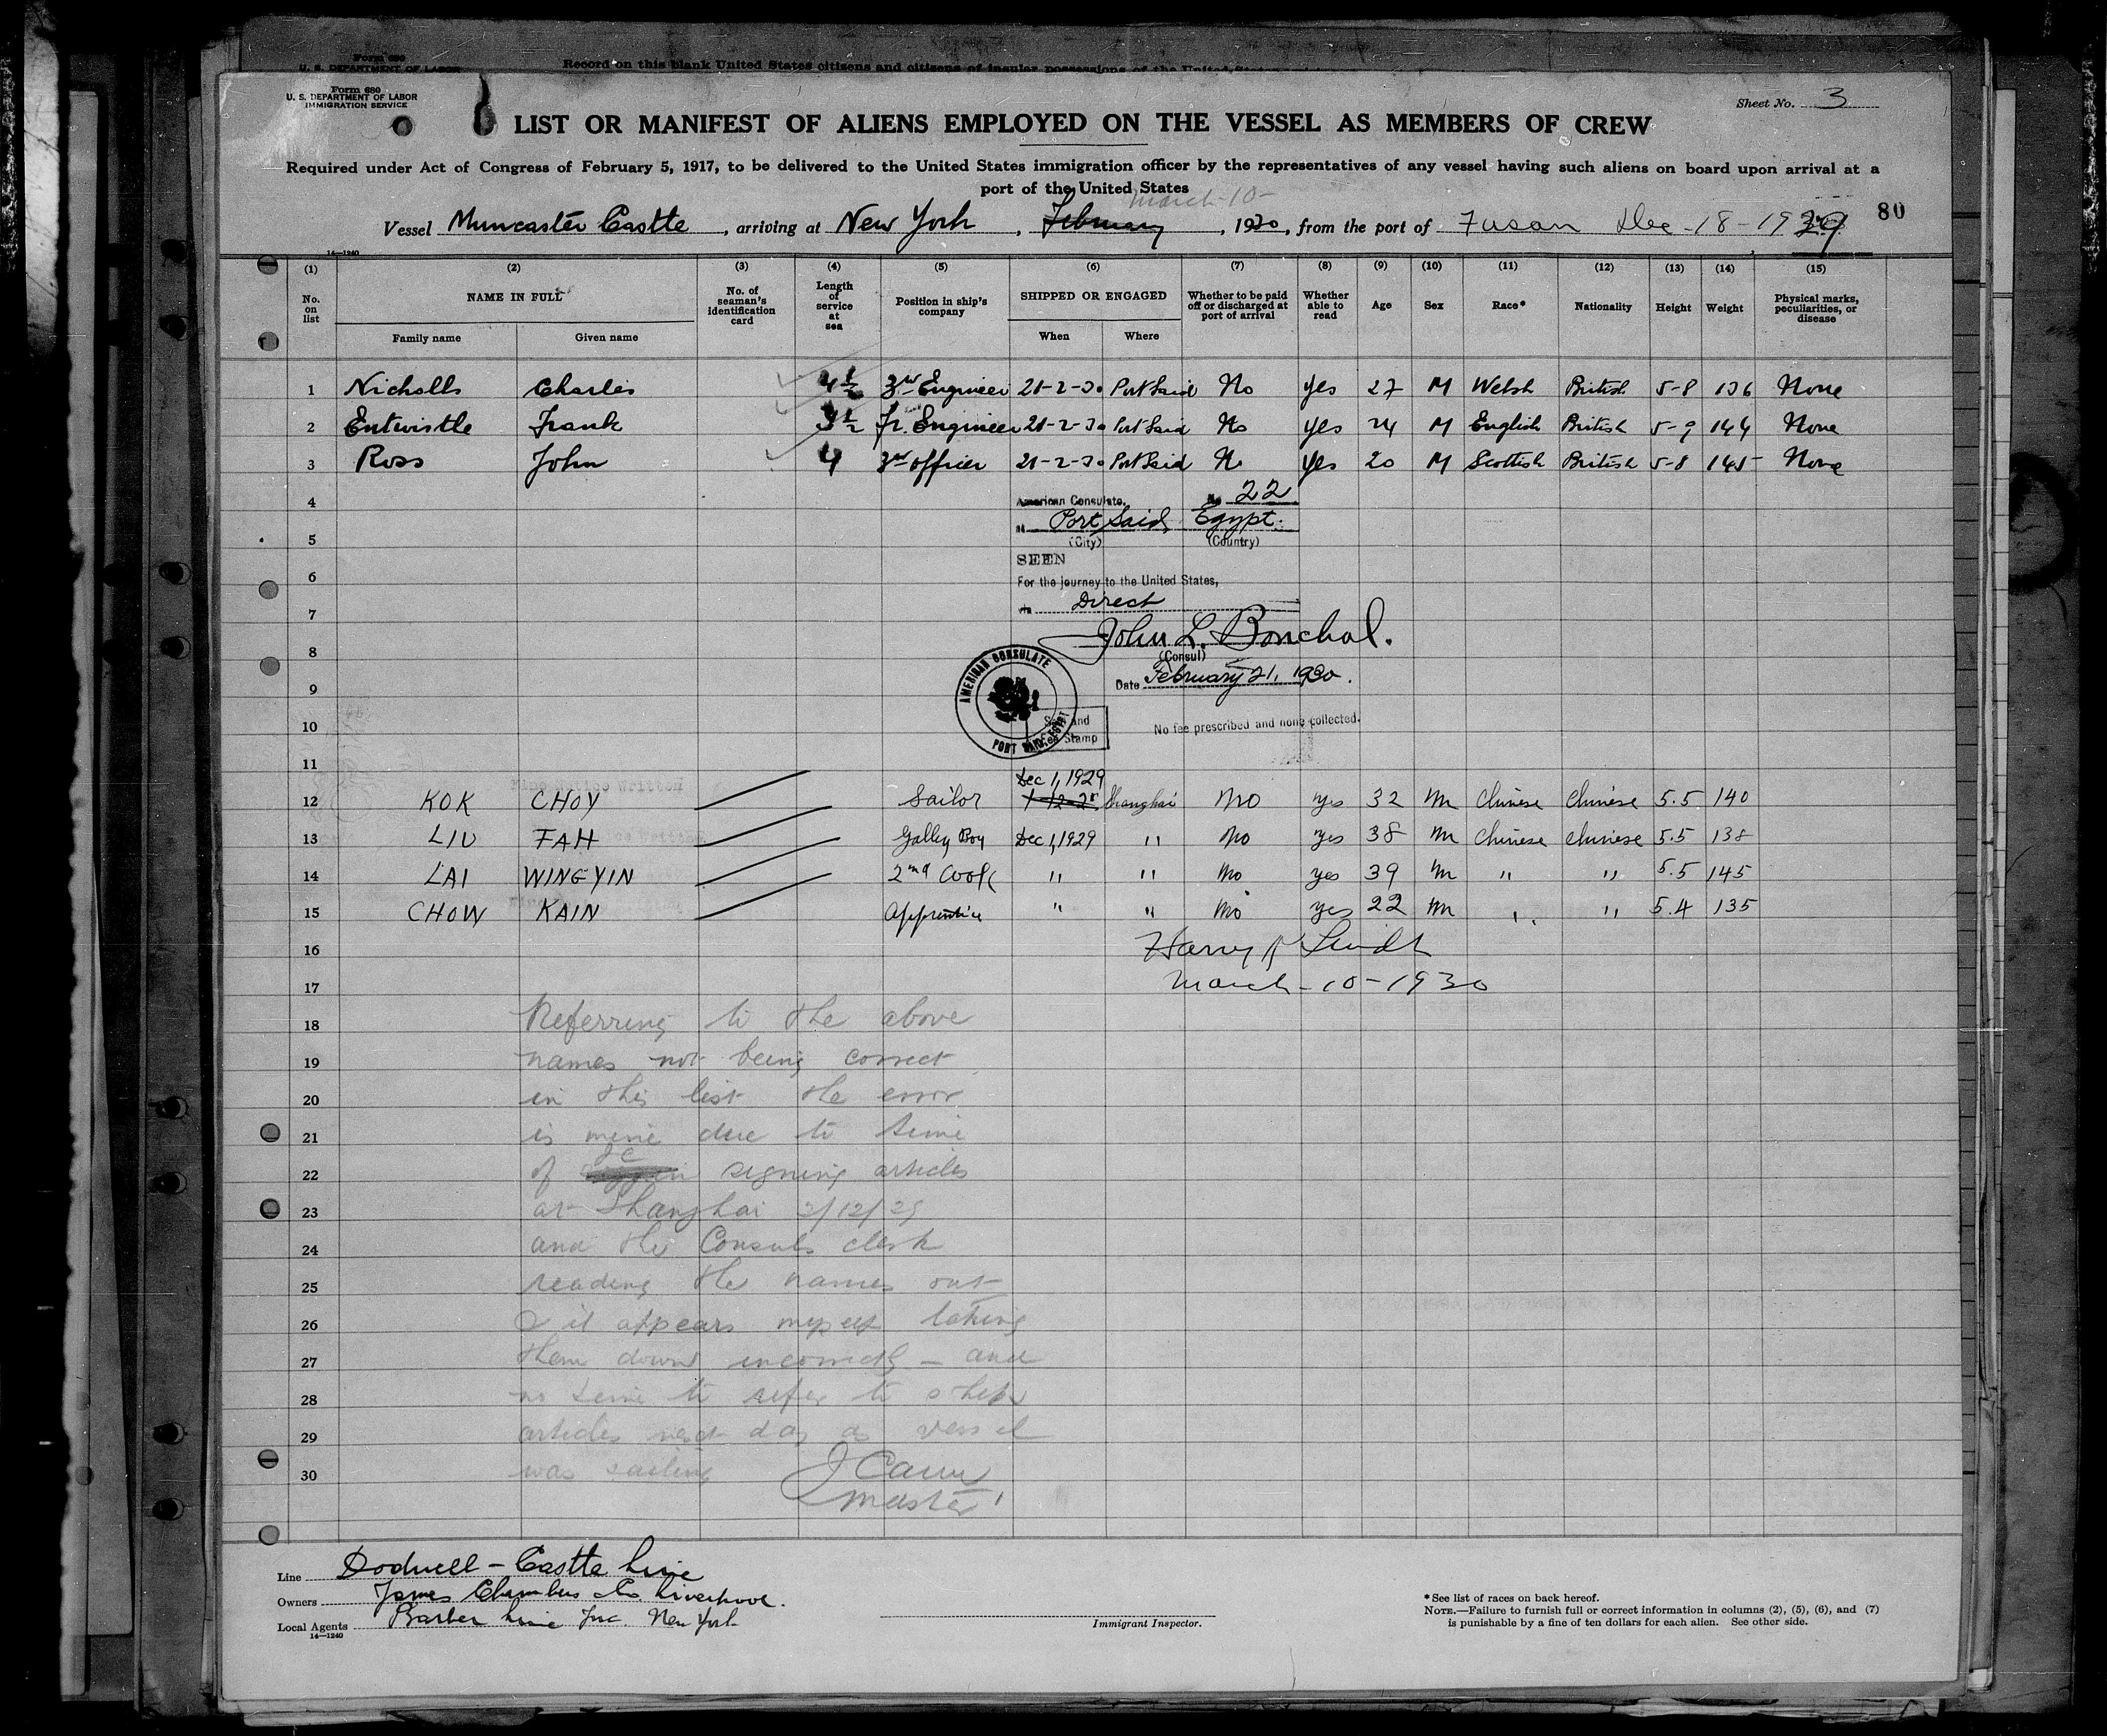 Form 680
U. S. DEPARTMENT OF LABOR
Record on this blank United States citizens and citizens of insular possessions of the United States
Form 680
U. S. DEPARTMENT OF LABOR
IMMIGRATION SERVICE
Sheet No. 3
LIST OR MANIFEST OF ALIENS EMPLOYED ON THE VESSEL AS MEMBERS OF CREW
Required under Act of Congress of February 5, 1917, to be delivered to the United States immigration officer by the representatives of any vessel having such aliens on board upon arrival at a
port of the United States
March-10-
Vessel Muncaster Castle, arriving at New York, February, 1930, from the port of Fusan Dec-18-1929
80
14—1240
(1) (2) (3) (4) (5) (6) (7) (8) (9) (10) (11) (12) (13) (14) (15)
No. on list NAME IN FULL No. of seaman's identification card Length of service at sea Position in ship's company SHIPPED OR ENGAGED Whether to be paid off or discharged at port of arrival Whether able to read Age Sex Race* Nationality Height Weight Physical marks, peculiarities, or disease
Family name Given name When Where
1 Nicholls Charles 4½ 3rd Engineer 21-2-30 Port Said No Yes 27 M Welsh British 5-8 136 None
2 Entwistle Frank 3½ Jr. Engineer 21-2-30 Port Said No Yes 24 M English British 5-9 144 None
3 Ross John 4 3rd officer 21-2-30 Port Said No Yes 20 M Scottish British 5-8 145 None
4 American Consulate, No 22
at Port Said, Egypt.
5 (City) (Country)
SEEN
6 For the journey to the United States,
7 via Direct
John L. Bouchal.
8 (Consul)
AMERICAN CONSULATE
PORT SAID, EGYPT
9 Date February 21, 1930.
10 Seal and Fee Stamp No fee prescribed and none collected.
11
Dec 1, 1929
12 KOK CHOY Sailor 1-12-29 Shanghai No yes 32 m Chinese Chinese 5.5 140
13 LIU FAH Galley Boy Dec 1, 1929 " No yes 38 m Chinese Chinese 5.5 138
14 LAI WING YIN 2nd Cook " " No yes 39 m " " 5.5 145
15 CHOW KAIN Apprentice " " No yes 22 m " " 5.4 135
16 Harry
17 March-10-1930
18 Referring to the above
19 names not being correct
20 in this list the error
21 is mine due to time
22 of signing articles
23 at Shanghai 2/12/29
24 and the Consuls clerk
25 reading the names out
26 & it appears myself taking
27 them down incorrectly - and
28 no time to refer to ships
29 articles next day as vessel
30 was sailing J Cann
Master
Line Dodwell - Castle Line
Owners James Chambers & Co Liverpool.
Local Agents Barber Line Inc. New York
14—1240
Immigrant Inspector.
*See list of races on back hereof.
NOTE.—Failure to furnish full or correct information in columns (2), (5), (6), and (7)
is punishable by a fine of ten dollars for each alien. See other side.